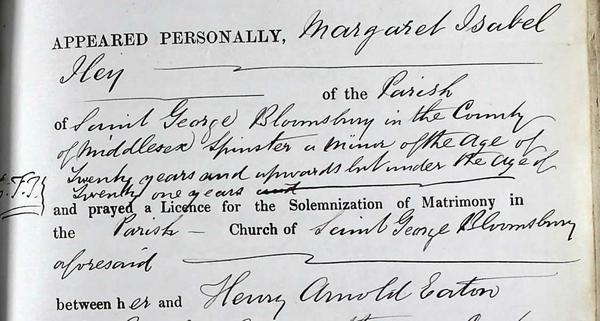 APPEARED PERSONALLY, Margaret Isabel
Iley
of the Parish
of Saint George Bloomsbury in the County
of Middlesex Spinster a minor of the Age of
Twenty years and upwards but under the age of
Twenty one years and
and prayed a Licence for the Solemnization of Matrimony in
the Parish Church of Saint George Bloomsbury
aforesaid
between her and Henry Arnold Eaton